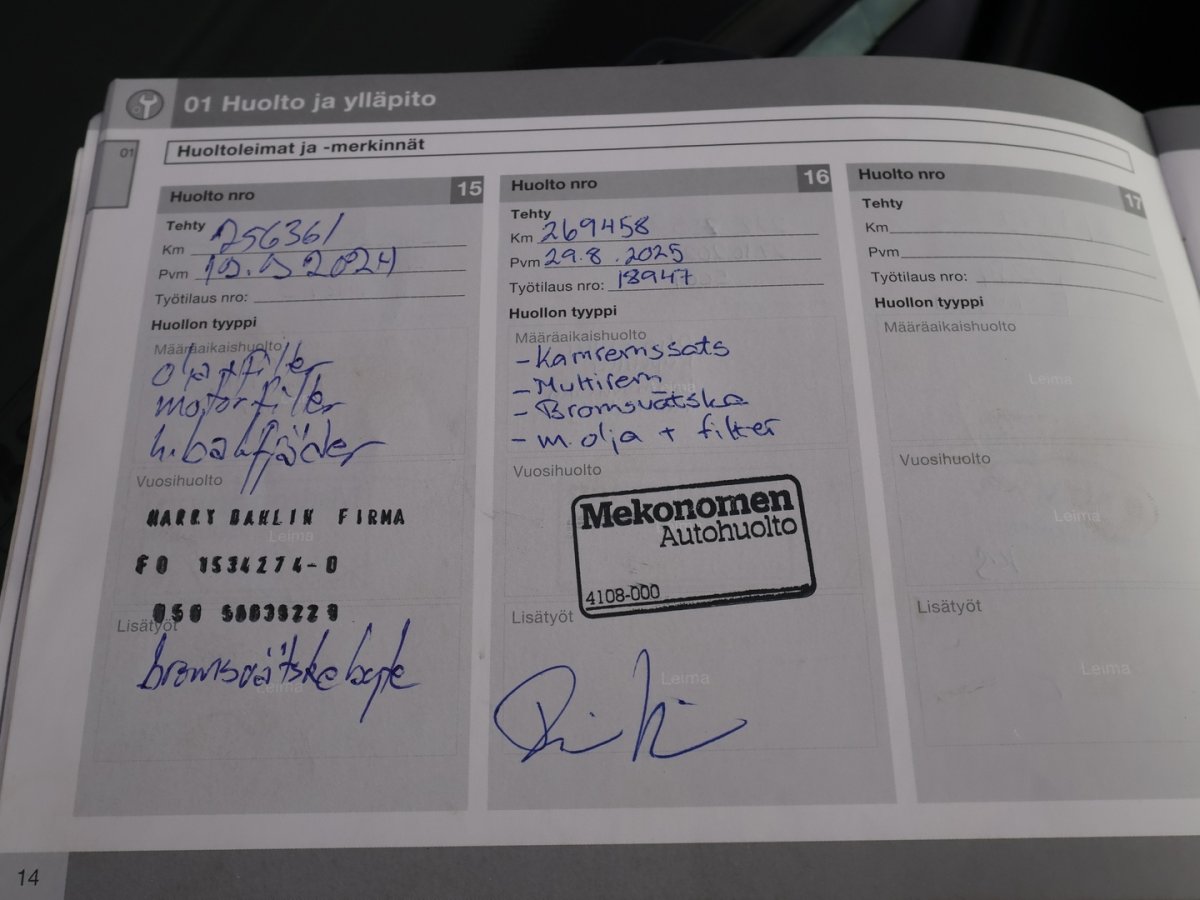 01 Huolto ja ylläpito
01
Huoltoleimat ja -merkinnät
Huolto nro 15
Tehty
Km 256361
Pvm 2024
Työtilaus nro:
Huollon tyyppi
Määräaikaishuolto
olja+filter
motorfilter
h.bakfjäder
Vuosihuolto
HARRY DAHLIN FIRMA
Leima
FO 1534274-0
050
Lisätyöt
bromsvätskebyte
Leima
Huolto nro 16
Tehty
Km 269458
Pvm 29.8.2025
Työtilaus nro: 18947
Huollon tyyppi
Määräaikaishuolto
- Kamremssats
- Multirem
Leima
- Bromsvätska
- m.olja + filter
Vuosihuolto
Mekonomen
Autohuolto
4108-000
Lisätyöt
Leima
Huolto nro 17
Tehty
Km
Pvm
Työtilaus nro:
Huollon tyyppi
Määräaikaishuolto
Leima
Vuosihuolto
Leima
Lisätyöt
Leima
14